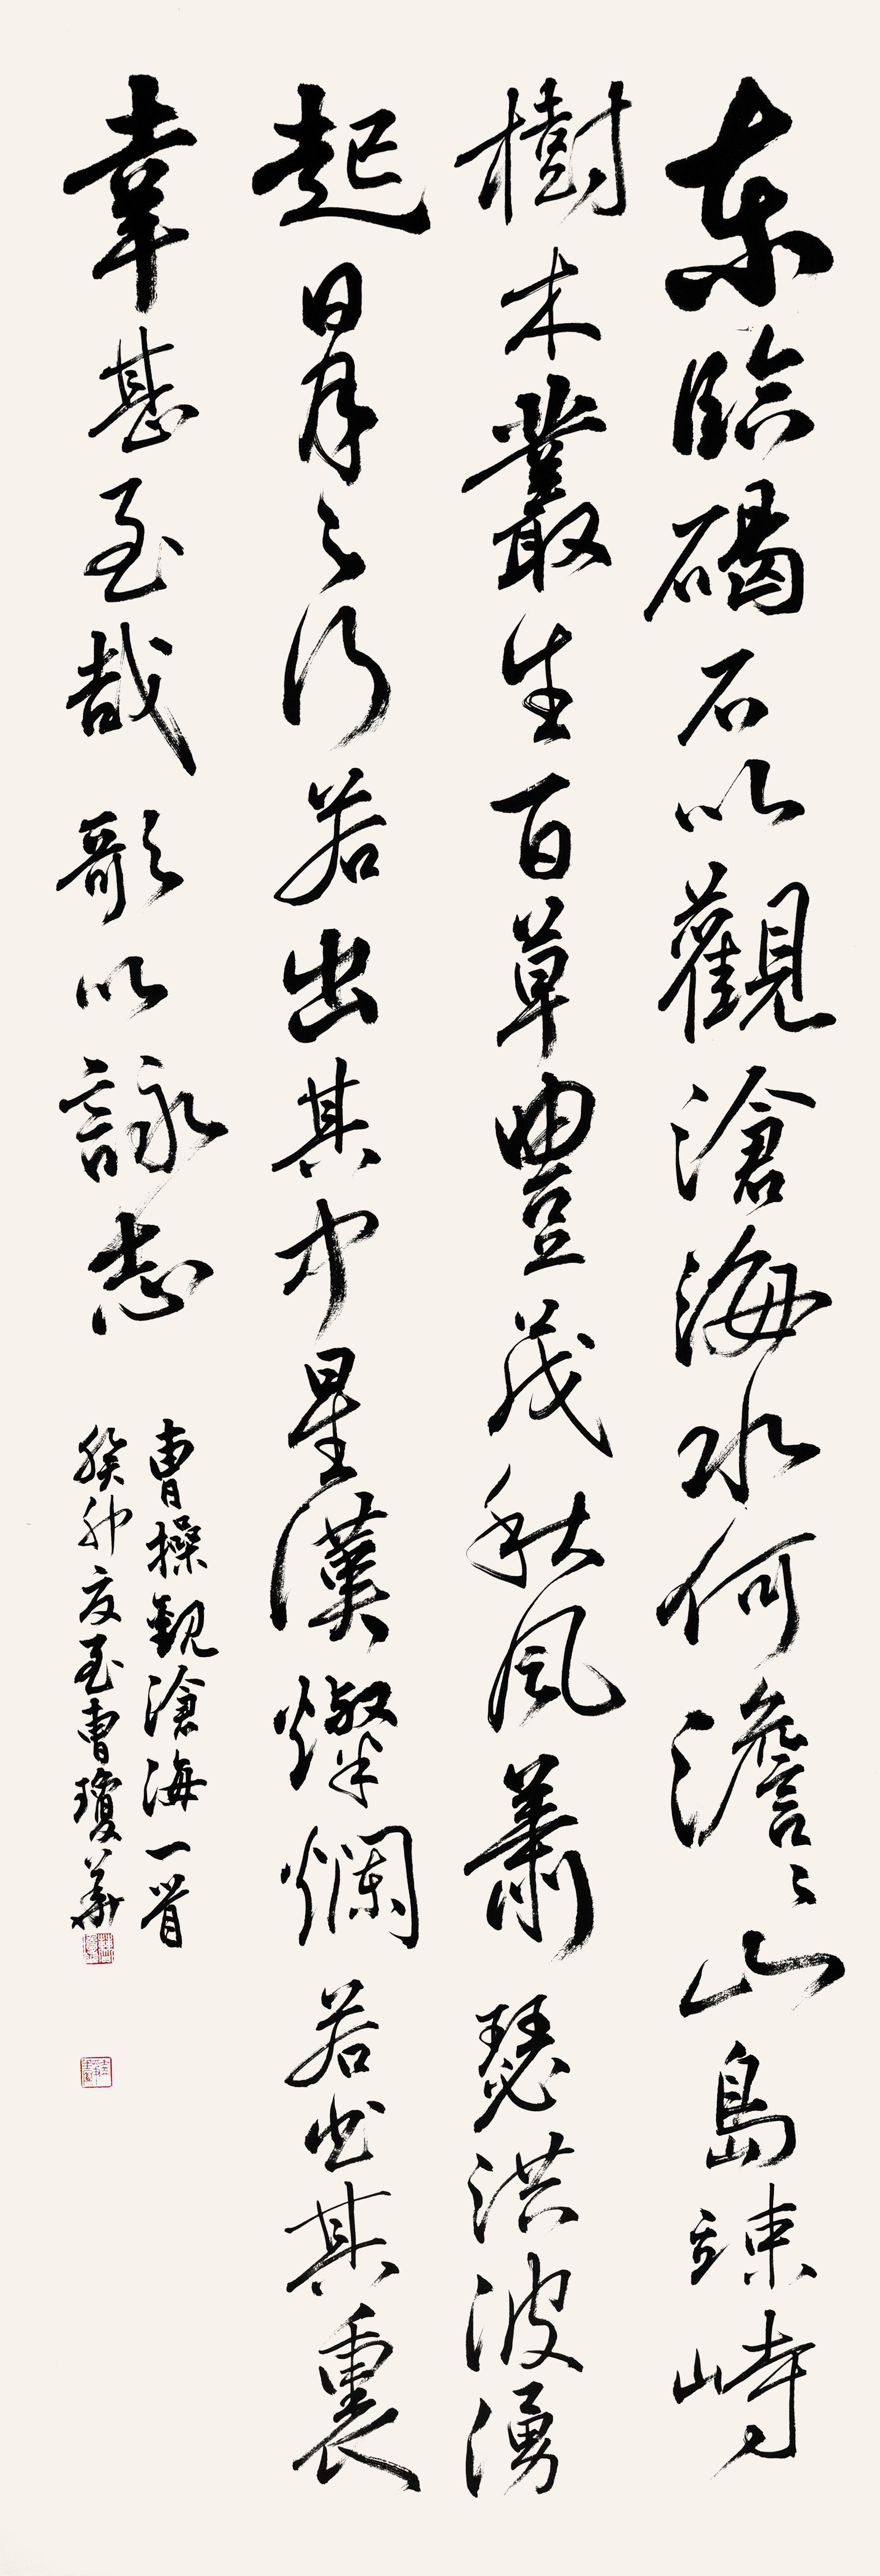 东臨碣石以觀滄海水何澹々山島竦峙
樹木叢生百草豐茂秋風蕭瑟洪波湧
起日月之行若出其中星漢燦爛若出其裏
幸甚至哉歌以詠志
曹操觀滄海一首
癸卯夏至曹瓊華